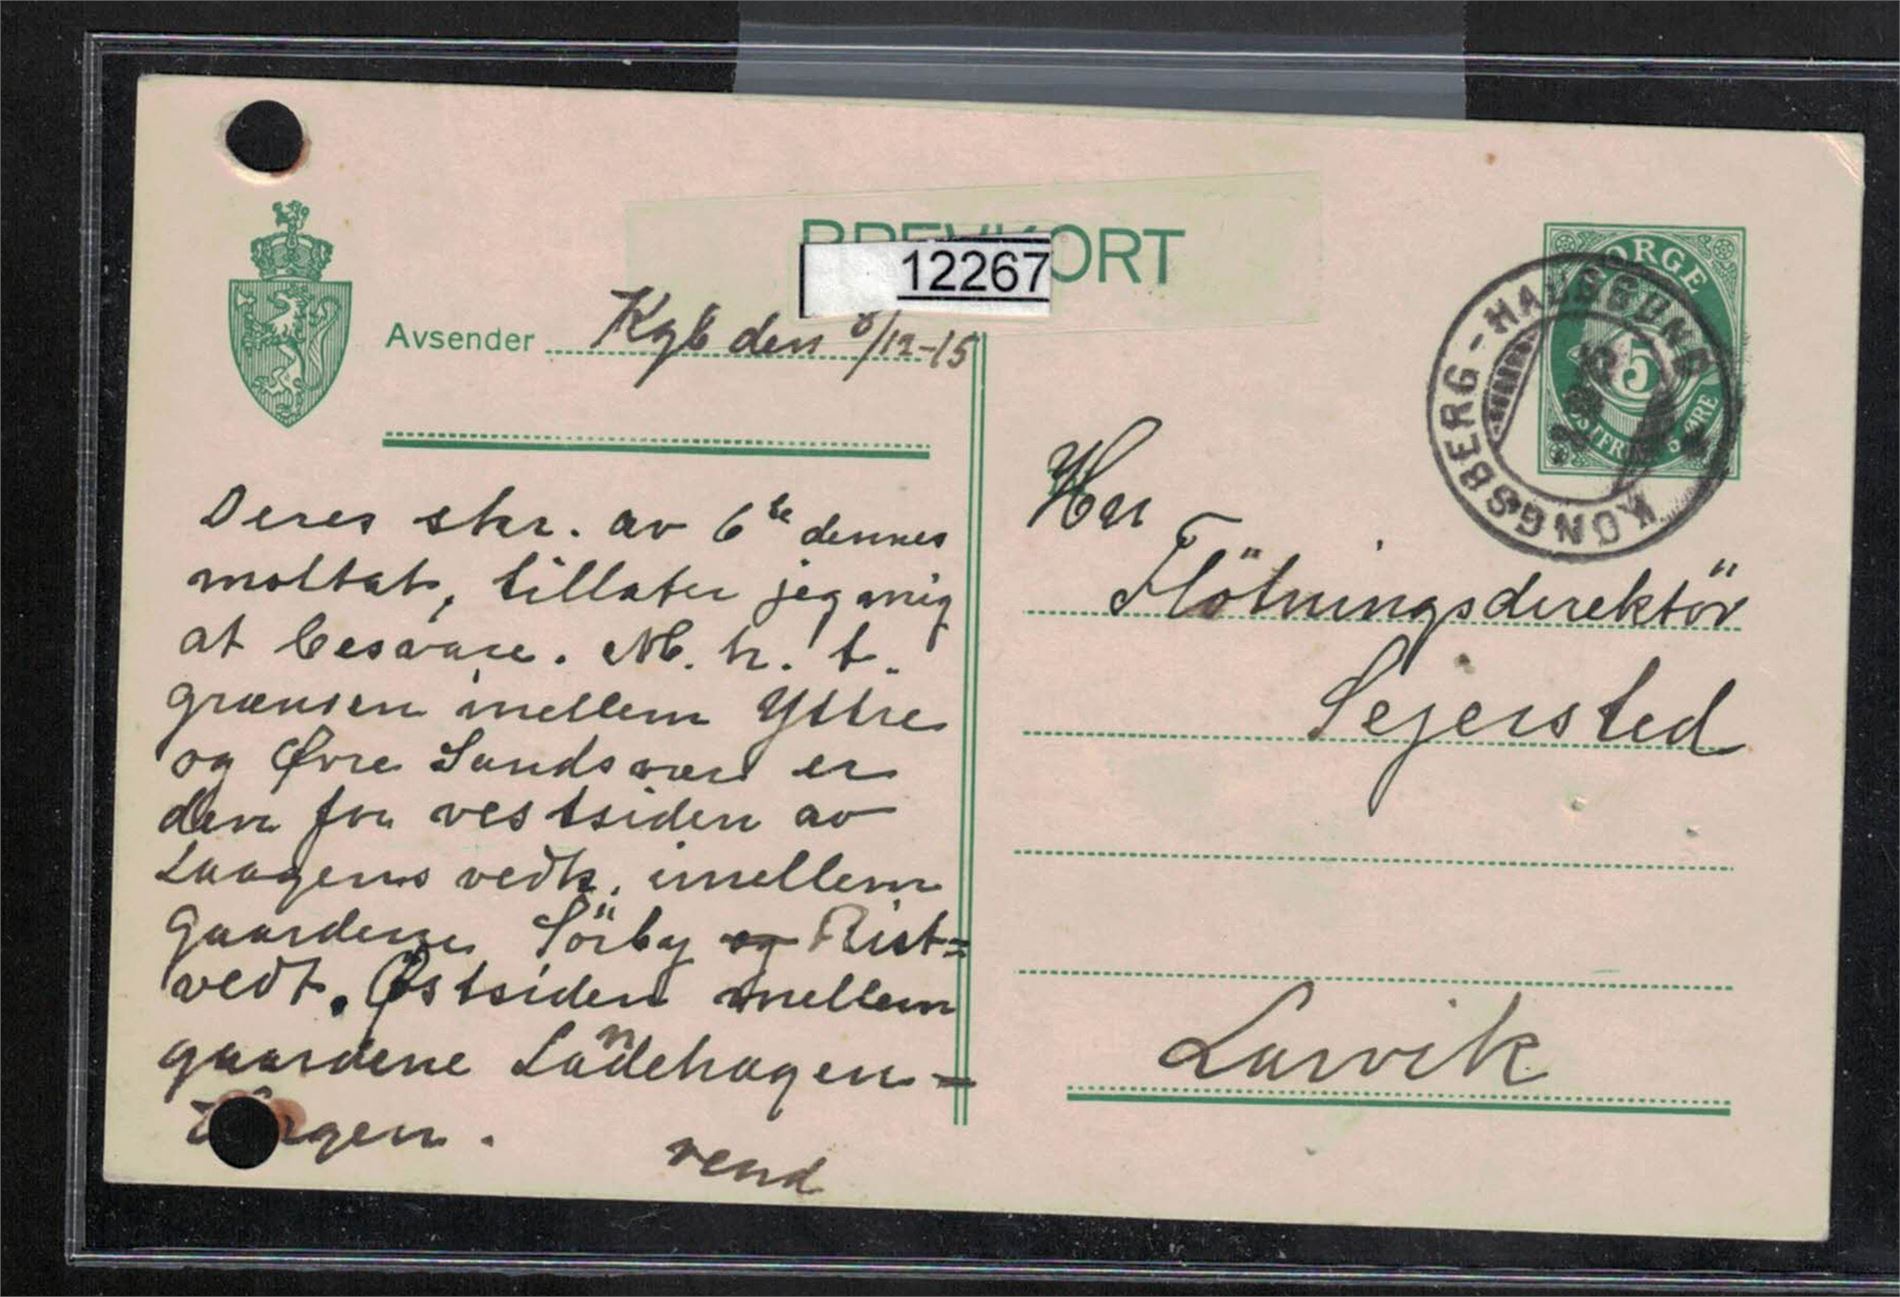 BREVKORT
12267
Avsender Kgb den 8/12-15
NORGE
5
KONGSBERG-HAUGSUND
Deres skr. av 6te dennes
mottat, tillater jeg mig
at besvare. M. h. t.
grænsen mellem Yttre
og Øvre Sandsvær er
den for vestsiden av
Laagens vedk. imellem
gaardene Sörby og Rist=
vedt. Østsiden mellem
gaardene Landehagen-
vend
Herr
Flötningsdirektör
Sejersted
Larvik